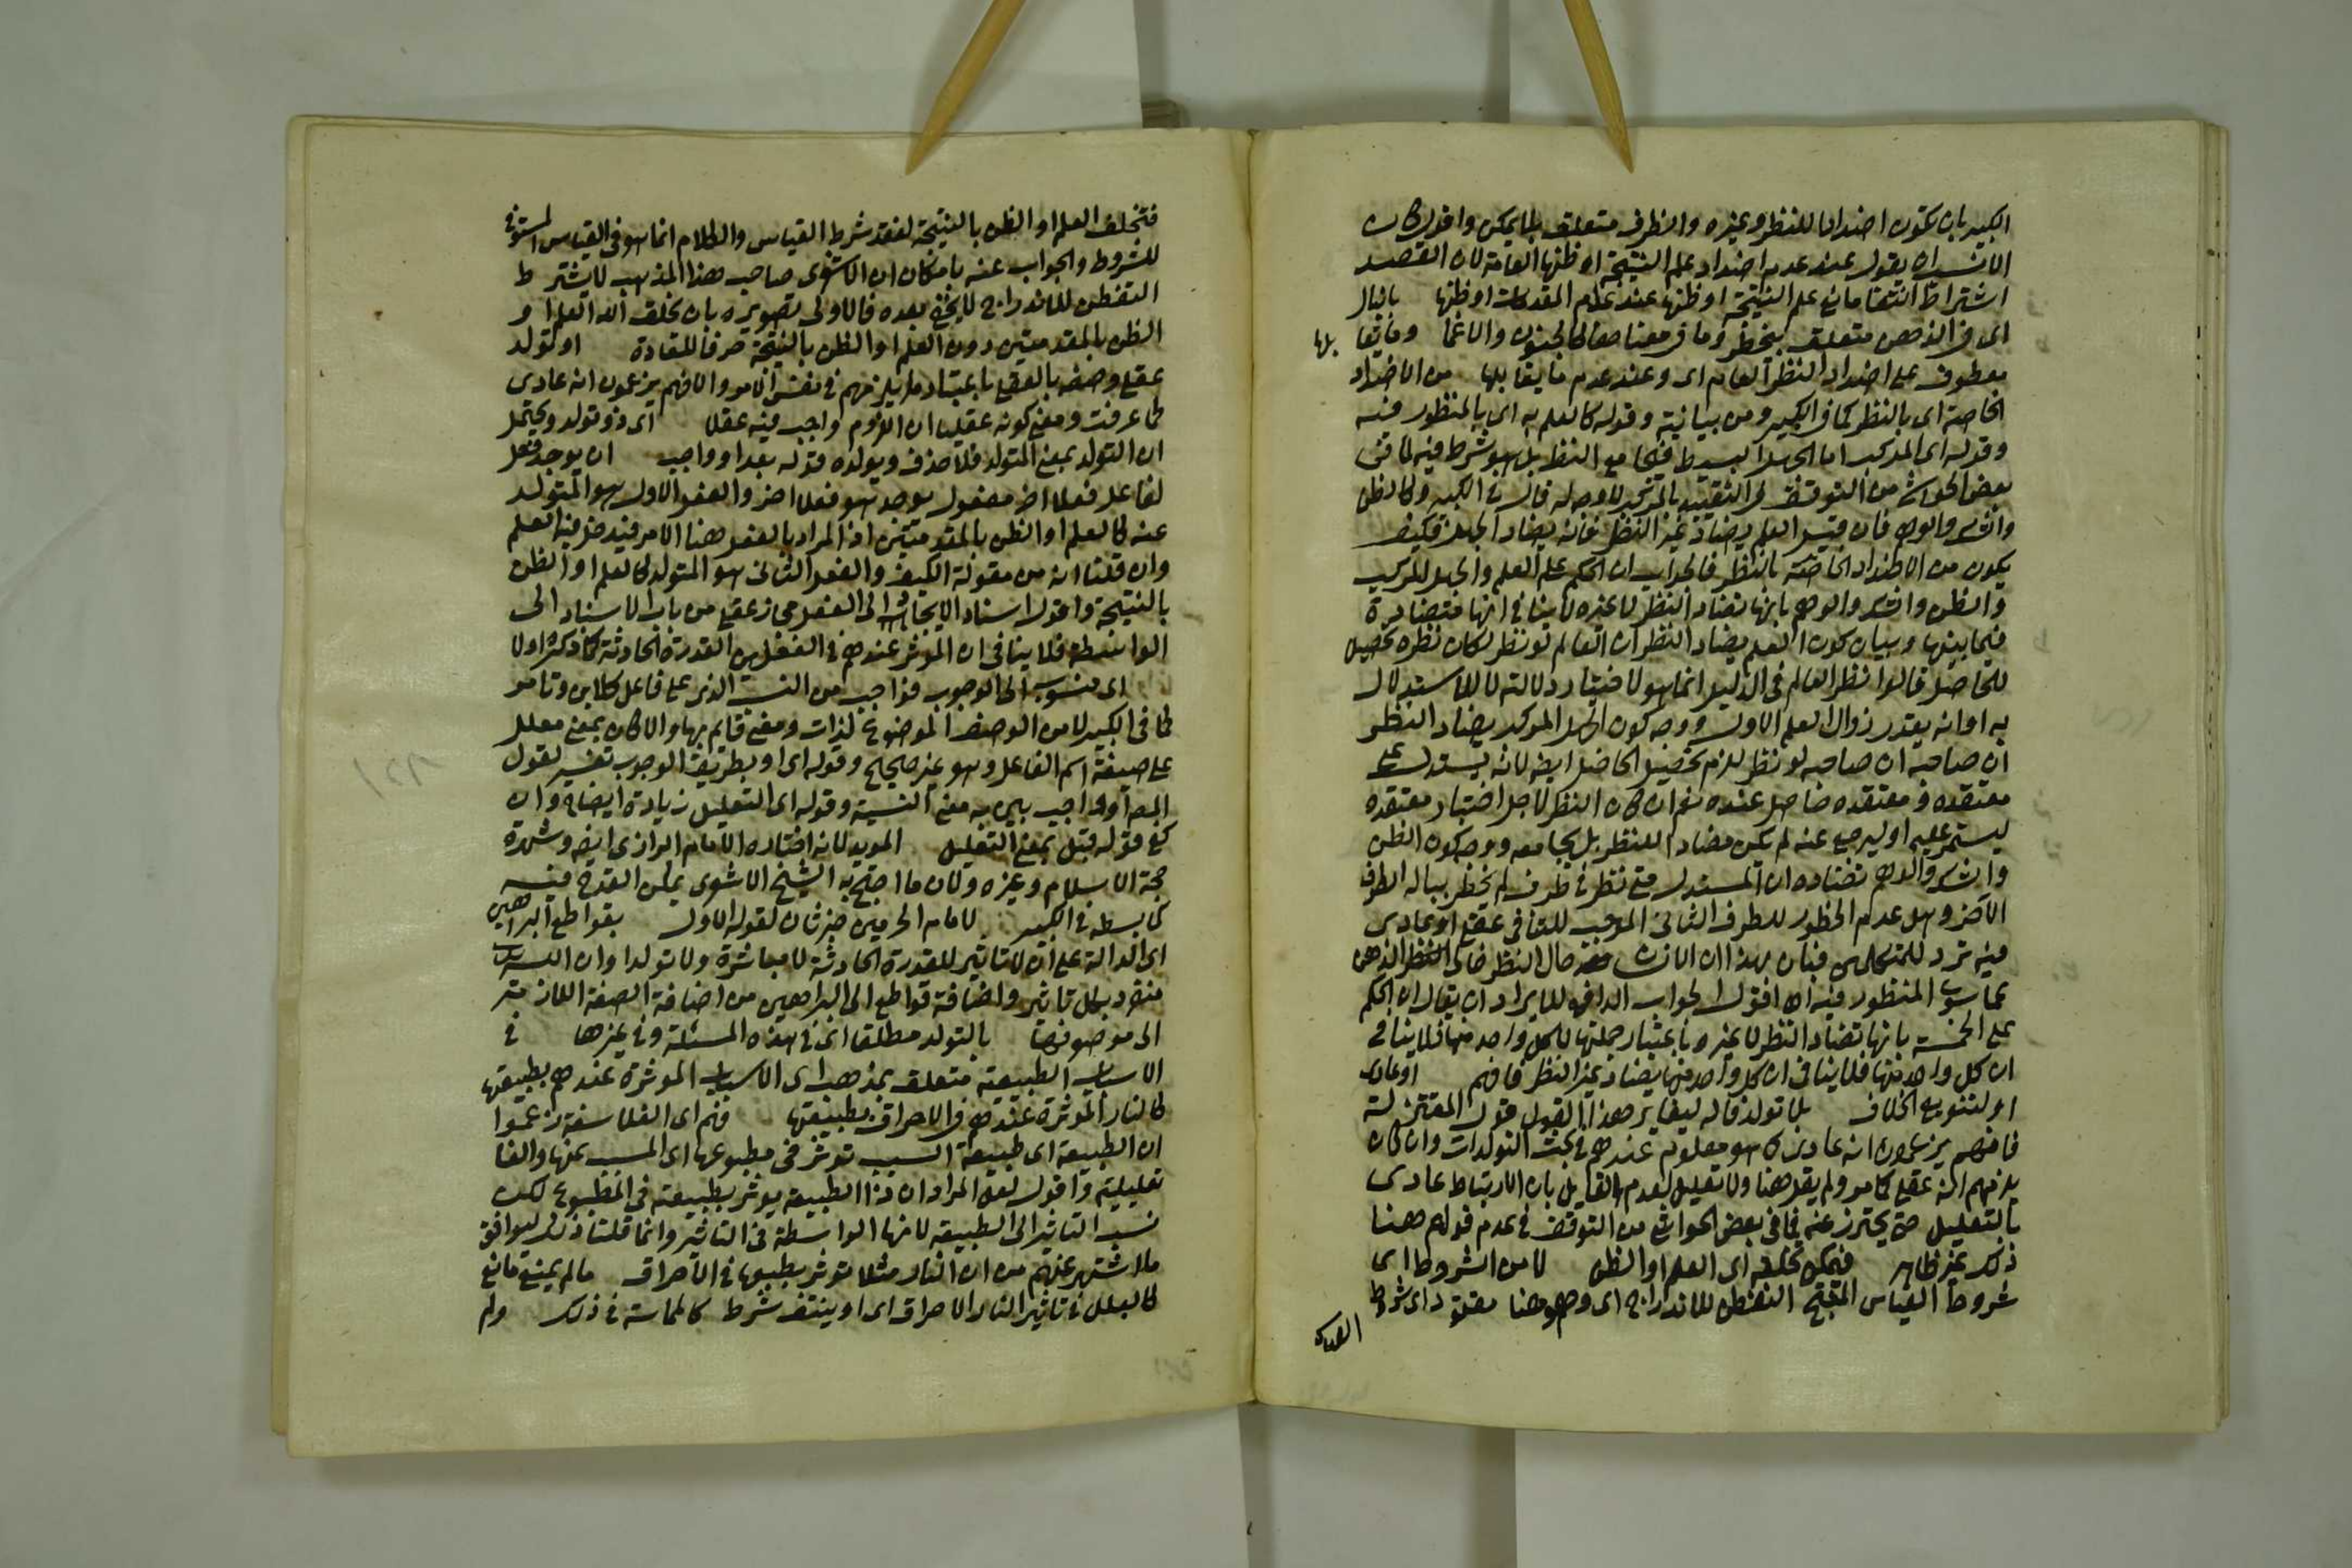 الكبير بان تكون اضدادا للنظر وغيره والظرف متعلق بما يمكن واقول كان
الانسب ان يقول عند عدم اضداد علم النتيجة او ظنها العامة لان القصد
اشتراط انتفا مانع علم النتيجة او ظنها عند علم المقدمات او ظنها بالبال
اى فى الذهن متعلق بخطر وما فى معناها كالجنون والاغما وما يقا بلها
معطوف على اضداد النظر العام اى وعند عدم ما يقابلها من الاضداد
الخاصة اى بالنظر كما فى الكبير ومن بيانية وقوله كالعلم به اى بالمنظور فيه
وقوله اى المركب اما الجهل البسيط فيجامع النظر بل هو شرط فيه فما فى
بعض الحواشى من التوقف فى التقييد بالمركب لا وجه له قال فى الكبير وكالظن
والشك والوهم فان قيل العلم يضاد غير النظر فانه يضاد الجهل فكيف
يكون من الاضداد الخاصة بالنظر فالجواب ان الحكم على العلم والجهل المركب
والظن والشك والوهم بانها تضاد النظر لا غيره لا ينافى انها متضادة
فيما بينها وبيان كون العلم يضاد النظر ان العالم لو نظر لكان نظره تحصيل
للحاصل قالوا نظر العالم فى الدليل انما هو لاختبار دلالته لا للاستدلال
به او انه يقدر زوال العلم الاول ووجه كون الجهل المركب يضاد النظر
ان صاحبه لو نظر لزم تحصيل الحاصل ايضا لانه يستدل على
معتقده ومعتقده حاصل عنده نعم ان كان النظر لاجل اختبار معتقده
ليستمر عليه او ليرجع عنه لم يكن مضادا للنظر بل يجامعه ووجه كون الظن
والشك والوهم تضاده ان المستدل متى نظر فى طرف لم يخطر بباله الطرف
الآخر وهل عدم الخطور للطرف الثانى الموجب للتنافى عقلى او عادى
فيه تردد للمتكلمين فبان بهذا ان الانسان حال النظر خالى الذهن
عما سوى المنظور فيه اه اقول الجواب الدافع للايراد ان يقال ان الحكم
على الخمسة بانها تضاد النظر لا غير وباعتبار جملتها لا كل واحد منها فلا ينافى
ان كل واحد منها فلا ينافى ان كل واحد منها يضاد غير النظر فافهم او عادى
او لتنويع الخلاف بلا تولد قاله ليغاير هذا القول قول المعتزلة
فانهم يزعمون انه عادى كما هو معلوم عندهم فى بحث التولدات وان كان
يلزمهم انه عقلى كما مر ولم يقل هنا ولا تعليل لعدم القايل بان الارتباط عادى
بالتعليل حتى يحترز عنه فما فى بعض الحواشى من التوقف فى عدم قولهم هنا
ذلك غير ظاهر فيمكن تخلفه اى العلم او الظن لا من الشروط اى
شروط القياس المنتج التفطن للاندراج اى وهو هنا مفقود اى شروط
القياس
فتخلف العلم او الظن بالنتيجة لفقد شرط القياس والكلام انما هو فى القياس المستوفى
للشروط والجواب عنه بامكان ان الاشعرى صاحب هذا المذهب لا يشترط
التفطن للاندراج لا يخفى بعده فالاولى تصويره بان يخلق الله العلم او
الظن بالمقدمتين دون العلم او الظن بالنتيجة خرقا للعادة او تولد
عقلى وصفه بالعقلى باعتبار ما يلزمهم فى نفس الامر والا فهم يزعمون انه عادى
كما عرفت ومعنى كونه عقليا ان اللزوم واجب فيه عقلا اى ذو تولد ويحتمل
ان التولد بمعنى المتولد فلا حذف ويؤيده قوله بعد او واجب ان يوجد فعل
لفاعل فعلا آخر مفعول يوجد هو فعلا آخر والفعل الاول هو المتولد
عنه كالعلم او الظن بالمقدمتين اذ المراد بالفعل هنا الامر فيدخل فيه العلم
وان قلنا انه من مقولة الكيف والفعل الثانى هو المتولد كالعلم او الظن
بالنتيجة واقول اسناد الايجاد الى الفعل مجاز عقلى من باب الاسناد الى
الواسطة فلا ينافى ان المؤثر عندهم فى الفعلين القدرة الحادثة كما ذكر اولا
اى منسوب الى الوجوب فواجب من النسب الذى على فاعل كلابن وتامر
كما فى الكبير لا من الوصف الموضوع لذات ومعنى قايم بها والا كان بمعنى معلل
على صيغة اسم الفاعل وهو غير صحيح وقوله اى او بطريق الوجوب تفسير لقول
المص او واجب بين به معنى النسبة وقوله اى التعليل زيادة ايضاح وان
كفى قوله قبل بمعنى التعليل المويد لانه اختاره الامام الرازى ايضا وشهره
حجة الاسلام وغيره ولان ما احتج به الشيخ الاشعرى يمكن القدح فيه
كما بسطه فى الكبير لامام الحرمين خبر ثان لقوله الاول بقواطع البراهين
اى الدالة على ان لا تاثير للقدرة الحادثة لا مباشرة ولا تولدا وان الله تعالى
منفرد بكل تاثير واضافة قواطع الى البراهين من اضافة الصفة اللازمة
الى موصوفها بالتولد مطلقا اى فى هذه المسئلة وفى غيرها فى
الاسباب الطبيعية متعلق بمذهب اى الاسباب المؤثرة عندهم بطبيعتها
كالنار المؤثرة عندهم فى الاحراق بطبيعتها فهم اى الفلاسفة زعموا
ان الطبيعة اى طبيعة السبب تؤثر فى مطبوعها اى المسبب عنها والفا
تعليلية واقول لعل المراد ان ذا الطبيعة يوثر بطبيعته فى المطبوع لكن
نسب التاثير الى الطبيعة لانها الواسطة فى التاثير وانما قلنا ذلك ليوافق
ما اشتهر عنهم من ان النار مثلا توثر بطبيعها فى الاحراق ما لم يمنع مانع
كالبلل فى تاثير النار الاحراق اى او ينتف شرط كالمماسة فى ذلك ولم